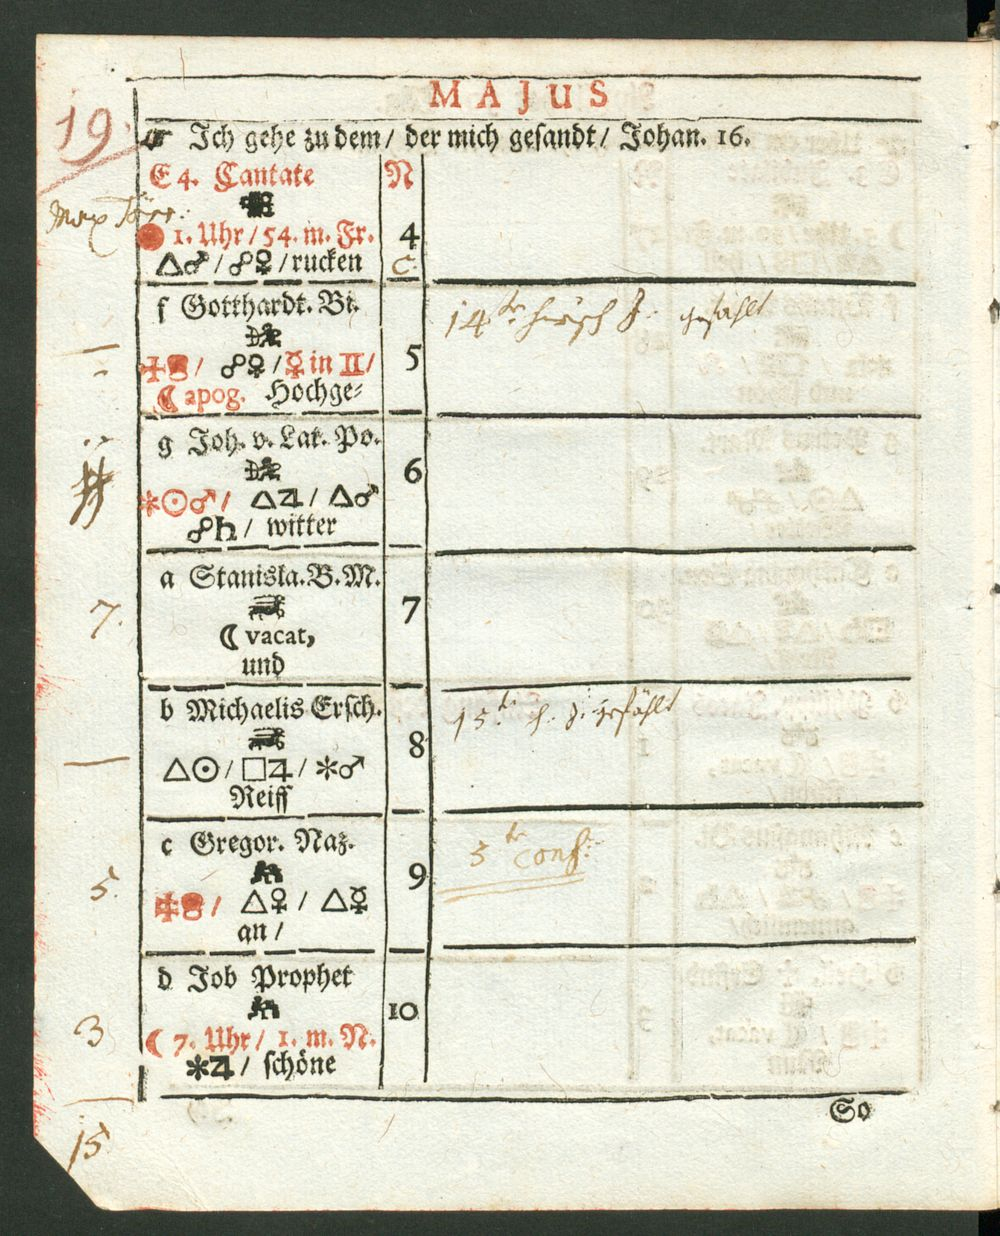 MAJUS
19.
☞ Ich gehe zu dem / der mich gesandt / Johan. 16.
E 4. Cantate N
1. Uhr / 54. m. Fr. 4
△♂ / ☍♀ / rucken C.
f Gotthardt. Bi.
14te hirsch gefählt
☍♀ / ☿ in II / 5
☾ apog. Hochge⸗
g Joh. v. Lat. Po.
6
✶☉♂ / △♃ / △♂
☍♄ / witter
a Stanisla. B. M.
7. 7
☾ vacat,
und
b Michaelis Ersch.
15te h. gefählt
8
△☉ / □♃ / ✶♂
Reiff
c Gregor. Naz.
5te Conf:
5. 9
△♀ / △☿
an /
d Job Prophet
10
3
☾ 7. Uhr / 1. m. N.
✶♃ / schöne
So
15